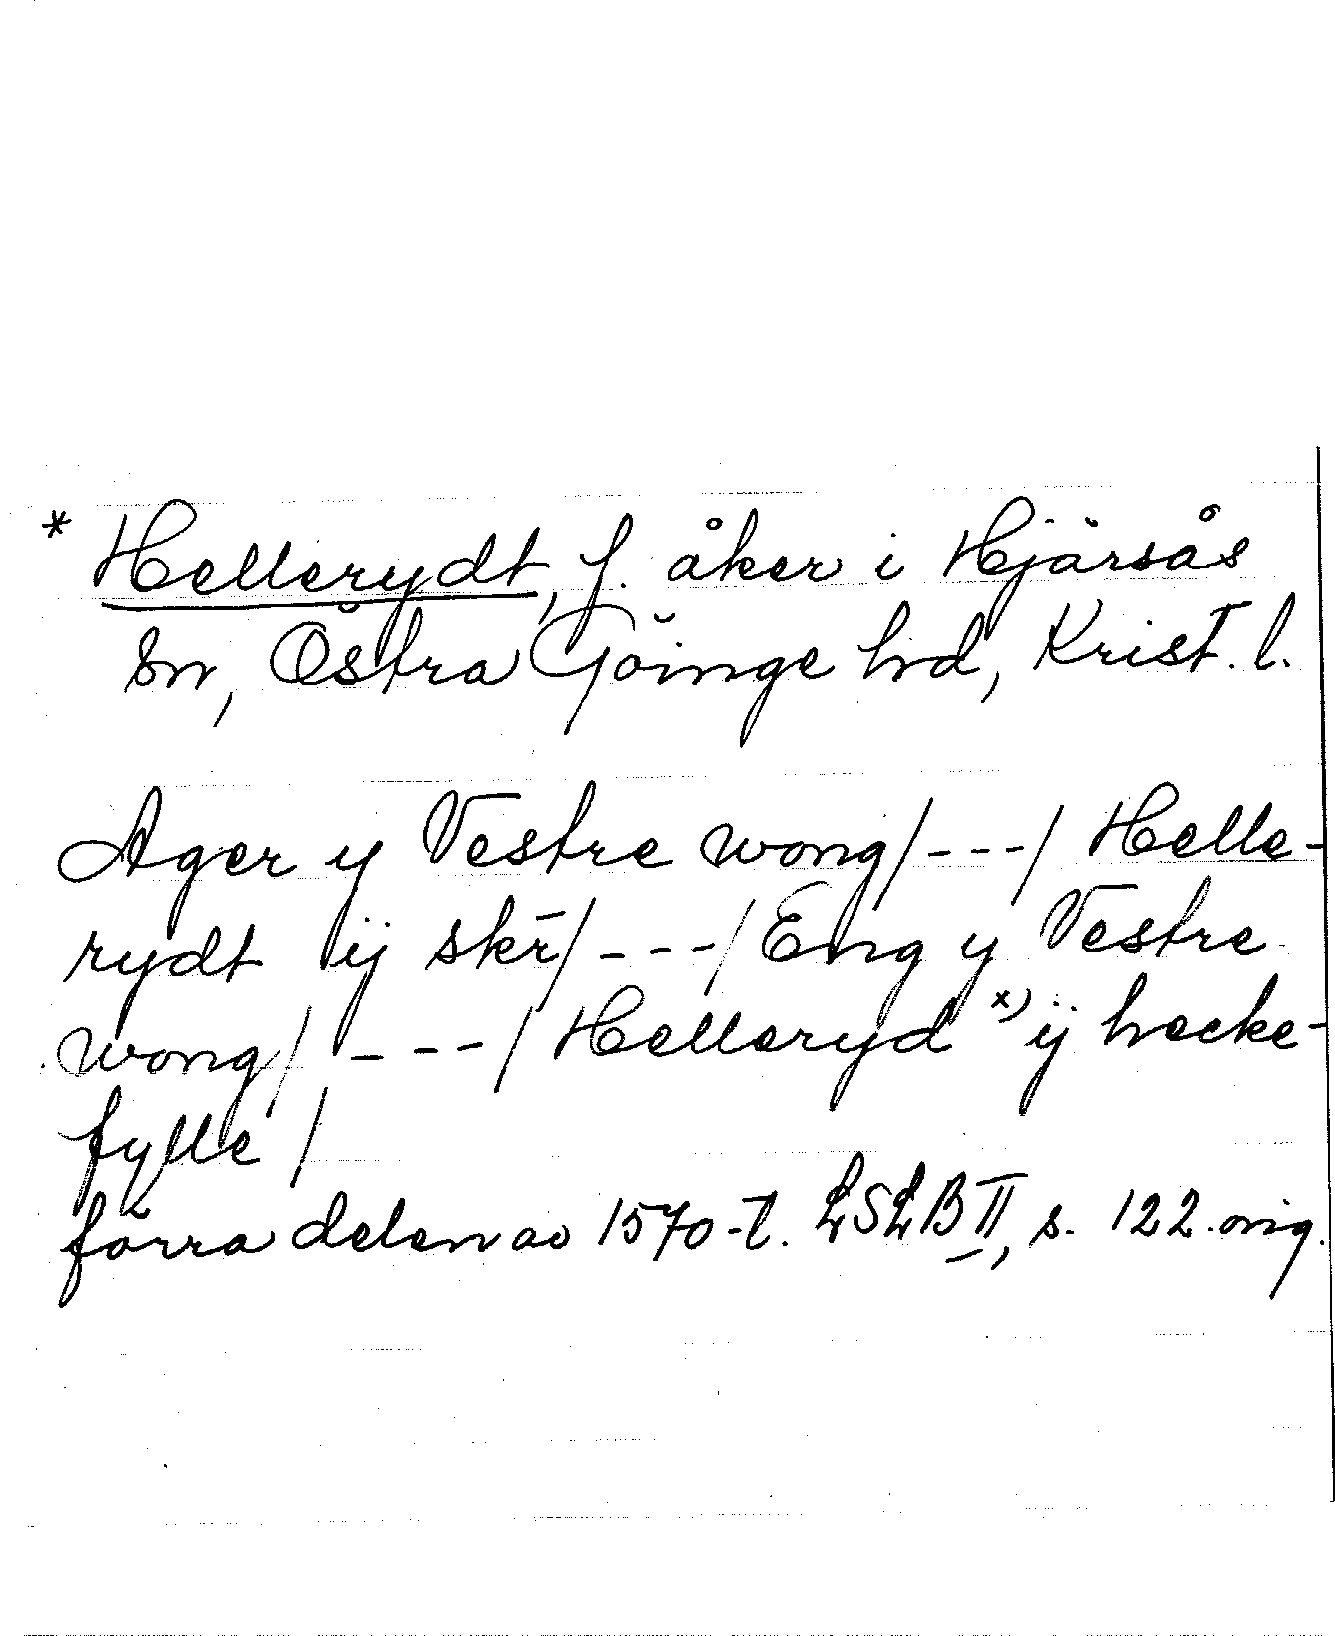 * Hellerydt, f. åker i Hjärsås
sn, Östra Göinge hd, Krist. l.
Ager y Vestre wong/---/ Helle-
rydt ij skr̄/---/ Eng y Vestre
wong/ ---/ Helleryd x) ij hecke-
fylle /
förra delen av 1570-t. LSLB II, s. 122. orig.